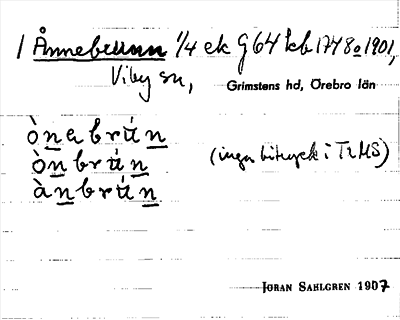 1 Ånnebrunn 1/4 ek G64 kb 1748 o 1901,
Viby sn,
Grimstens hd, Örebro län
ònabrún
ònbrún
(inga bitryck i TrMS)
ànbrún
JÖRAN SAHLGREN 1907